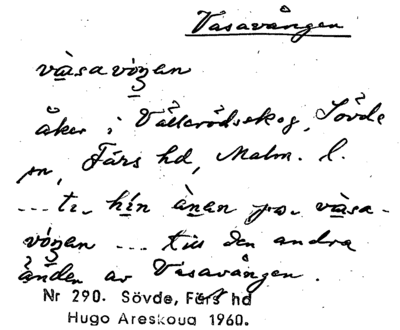 Vasavången
vàsavóŋan
åker i Vällerödsskog, Sövde
sn, Färs hd, Malm. l.
... te hín ànan po vàsa-
vóŋan ... till den andra
änden av Vasavången.
Nr 290. Sövde, Färs hd
Hugo Areskoug 1960.